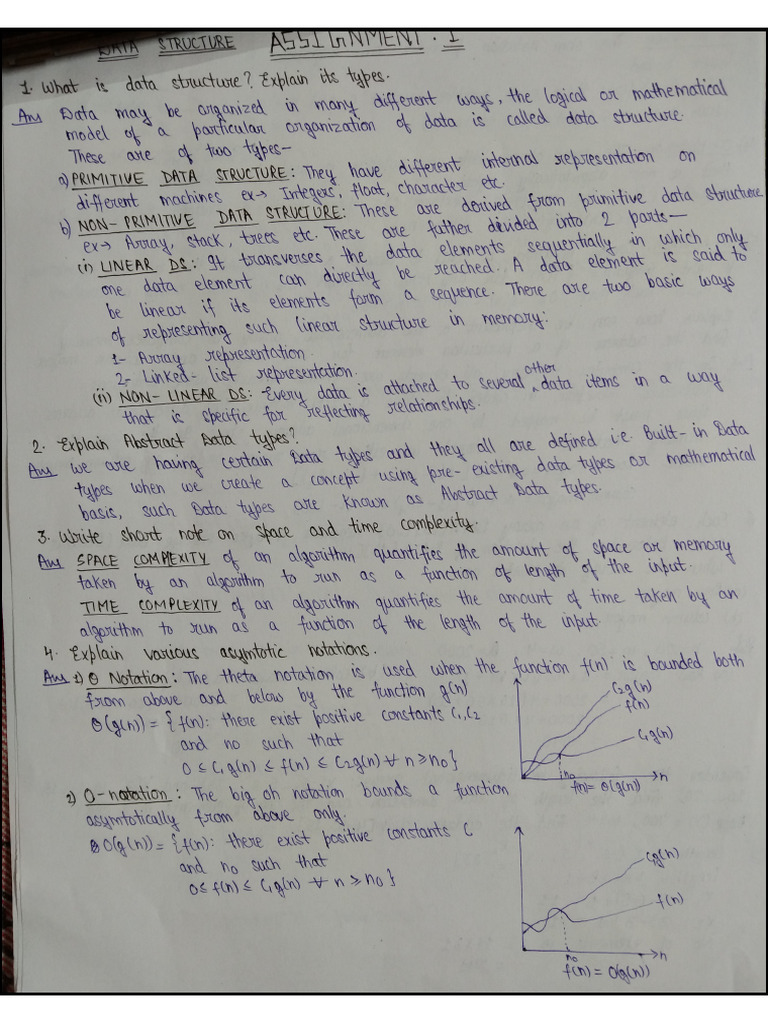 DATA STRUCTURE ASSIGNMENT - 1
1. What is data structure? Explain its types.
Ans Data may be organized in many different ways, the logical or mathematical
model of a particular organization of data is called data structure.
These are of two types-
a) PRIMITIVE DATA STRUCTURE: They have different internal representation on
different machines ex→ Integers, float, character etc.
b) NON-PRIMITIVE DATA STRUCTURE: These are derived from primitive data structure
ex→ Array, stack, trees etc. These are futher divided into 2 parts—
(i) LINEAR DS: It transverses the data elements sequentially in which only
one data element can directly be reached. A data element is said to
be linear if its elements form a sequence. There are two basic ways
of representing such linear structure in memory:
1- Array representation.
2- Linked-list representation.
(ii) NON-LINEAR DS: Every data is attached to several other data items in a way
that is specific for reflecting relationships.
2. Explain Abstract Data types?
Ans We are having certain Data types and they all are defined i.e. Built-in Data
types when we create a concept using pre-existing data types or mathematical
basis, such Data types are known as Abstract Data types.
3. Write short note on space and time complexity.
Ans SPACE COMPEXITY of an algorithm quantifies the amount of space or memory
taken by an algorithm to run as a function of length of the input.
TIME COMPLEXITY of an algorithm quantifies the amount of time taken by an
algorithm to run as a function of the length of the input.
4. Explain various asymtotic notations.
Ans 1) Θ Notation: The theta notation is used when the function f(n) is bounded both
from above and below by the function g(n)
Θ(g(n)) = {f(n): there exist positive constants C1, C2
and no such that
0 ≤ C1g(n) ≤ f(n) ≤ C2g(n) ∀ n ≥ n0}
C2g(n)
f(n)
C1g(n)
n0
n
f(n) = Θ(g(n))
2) O-notation: The big oh notation bounds a function
asymtotically from above only.
O(g(n)) = {f(n): there exist positive constants C
and no such that
0 ≤ f(n) ≤ C1g(n) ∀ n ≥ n0}
Cg(n)
f(n)
n0
n
f(n) = O(g(n))